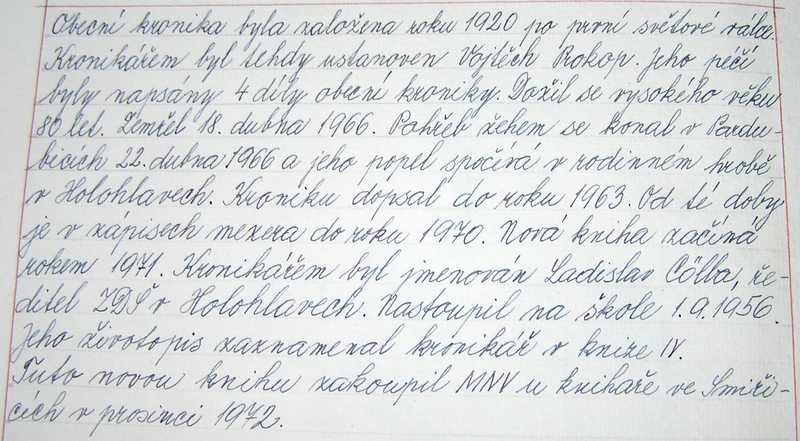 Obecní kronika byla založena roku 1920 po první světové válce.
Kronikářem byl tehdy ustanoven Vojtěch Prokop. Jeho péčí
byly napsány 4 díly obecní kroniky. Dožil se vysokého věku
80 let. Zemřel 18. dubna 1966. Pohřeb žehem se konal v Pardu-
bicích 22. dubna 1966 a jeho popel spočívá v rodinném hrobě
v Holohlavech. Kroniku dopsal do roku 1963. Od té doby
je v zápisech mezera do roku 1970. Nová kniha začíná
rokem 1971. Kronikářem byl jmenován Ladislav Cölba, ře-
ditel ZDŠ v Holohlavech. Nastoupil na škole 1.9.1956.
Jeho životopis zaznamenal kronikář v knize IV.
Tuto novou knihu zakoupil MNV u knihaře ve Smiři-
cích v prosinci 1972.